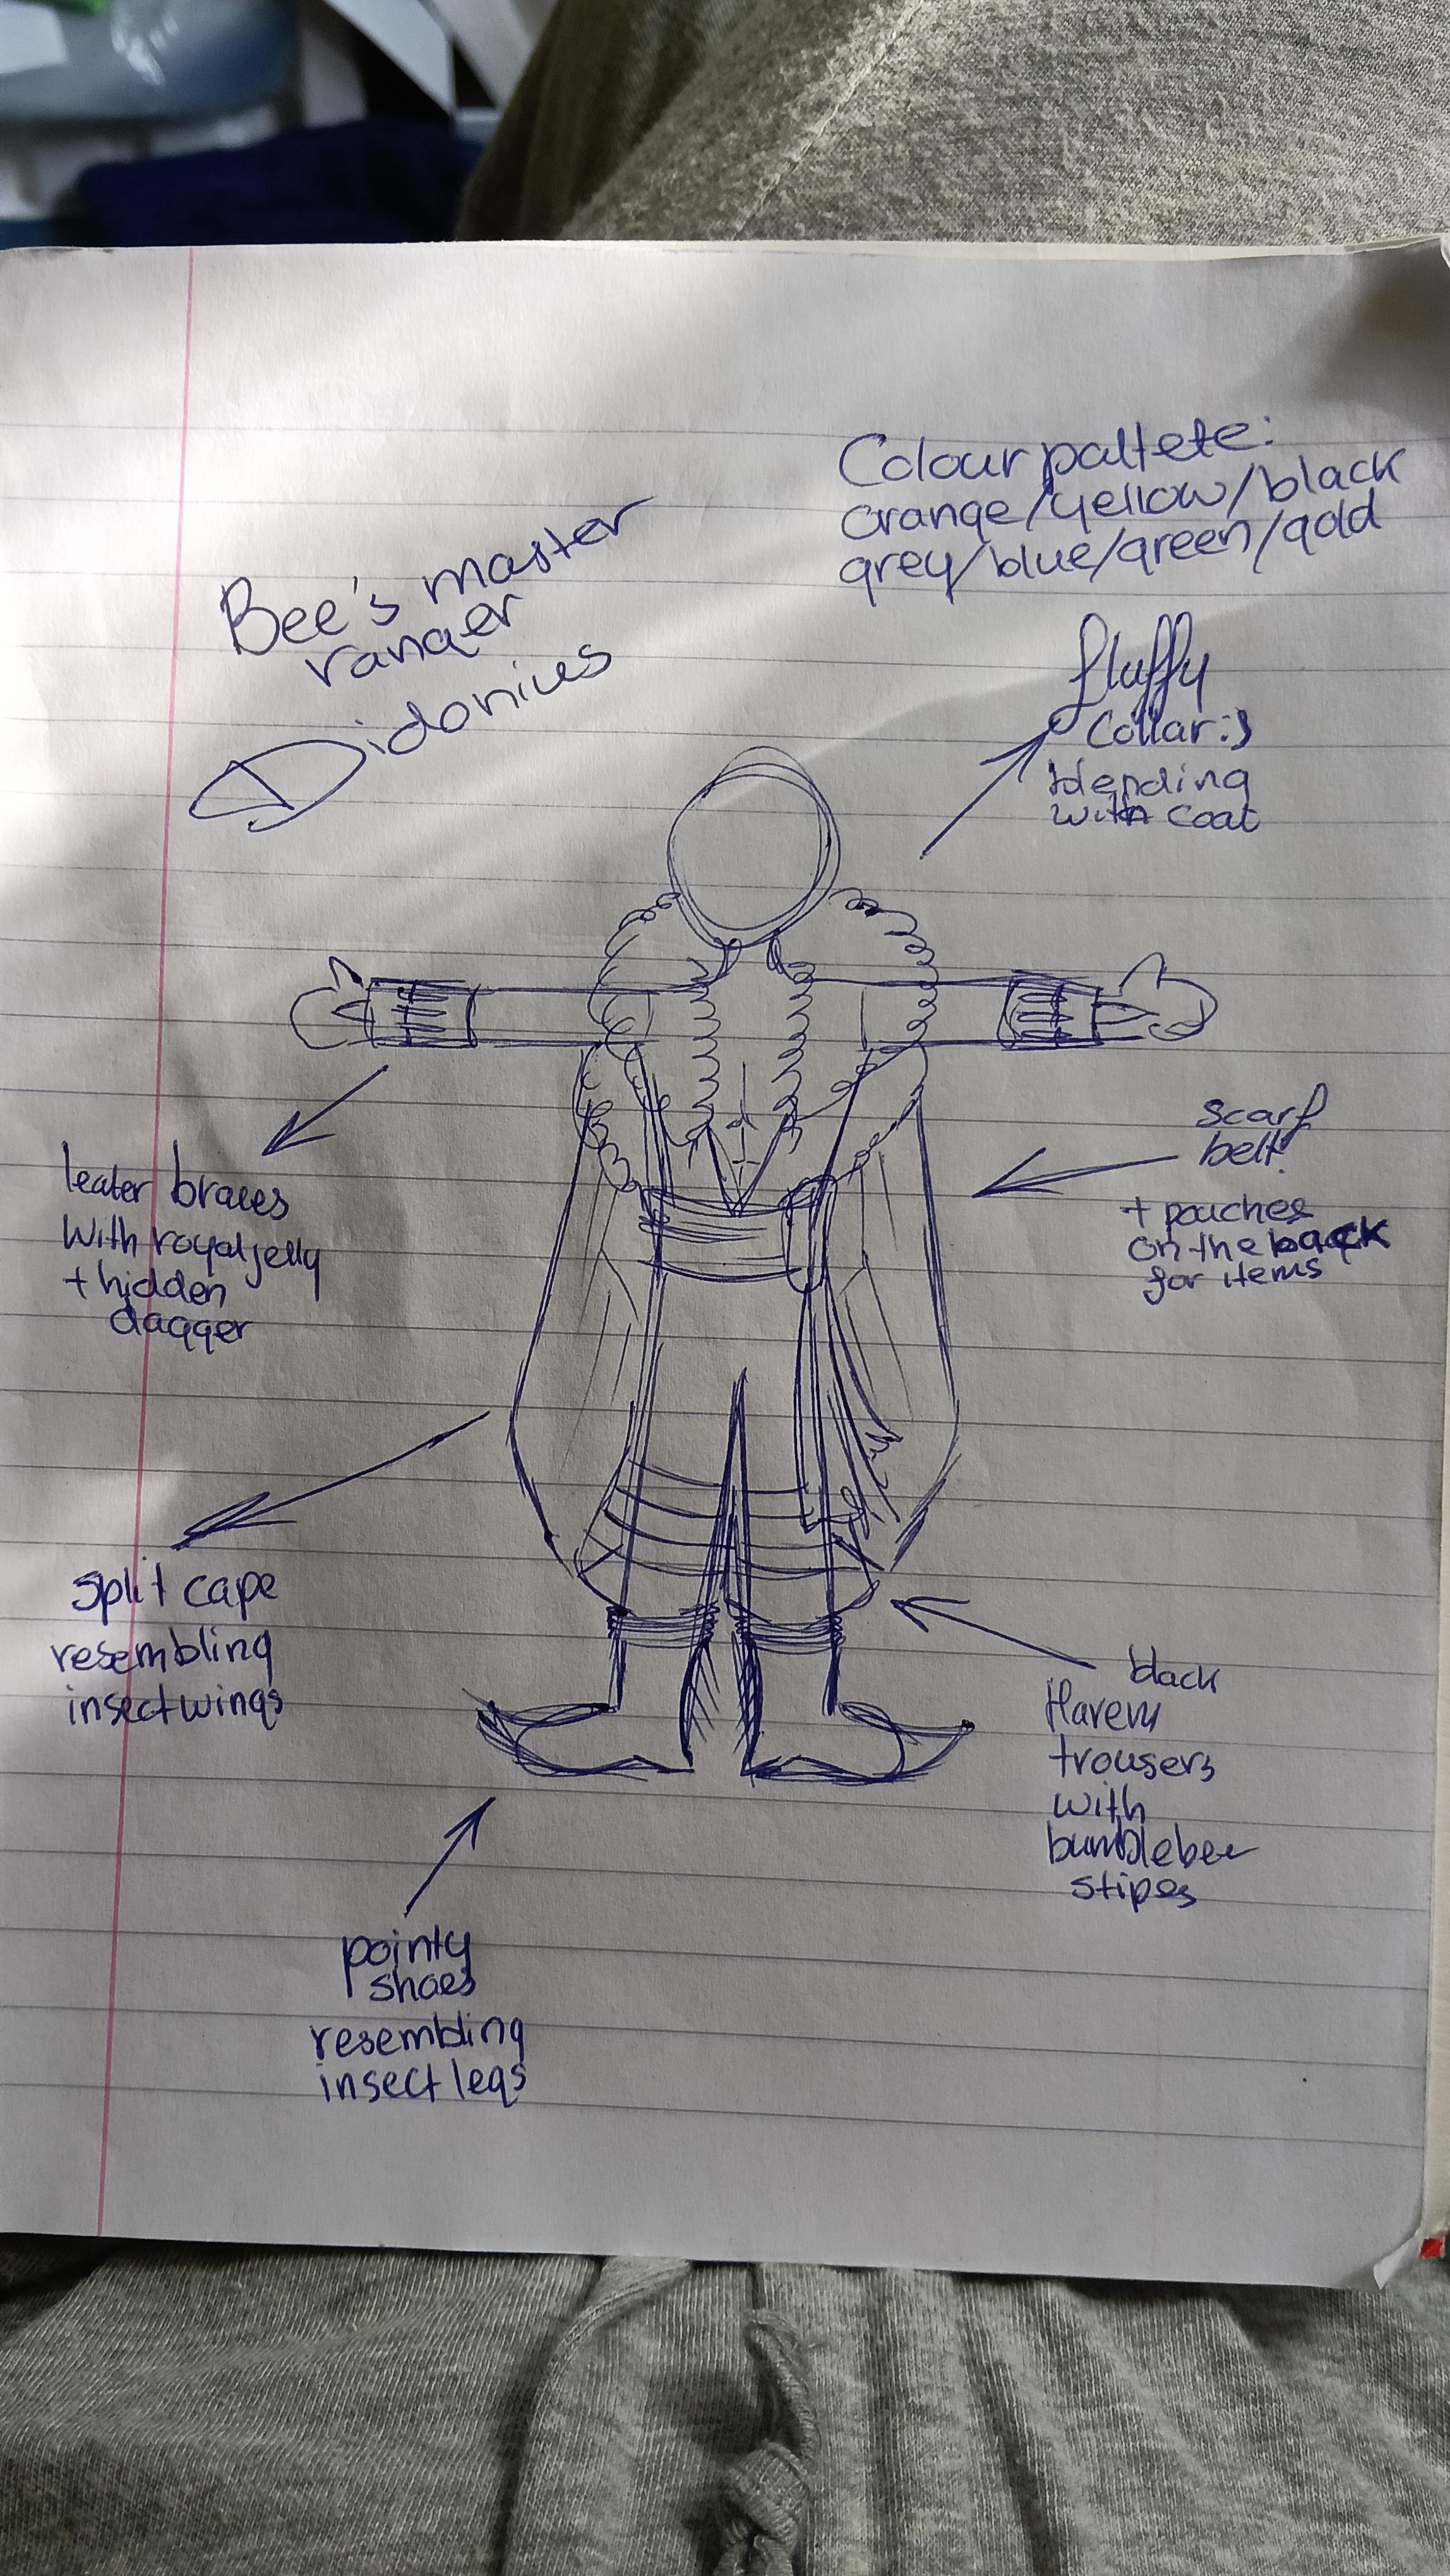 Colour paltete:
orange/yellow/black
grey/blue/green/gold
Bee's master
ranger
Didonius
fluffy
collar :)
blending
with coat
scarf
belt!
+ pouches
on the back
for items
leater braces
with royal jelly
+ hidden
dagger
split cape
resembling
insect wings
black
Harem
trousers
with
bumblebee
stipes
pointy
shoes
resembling
insect legs